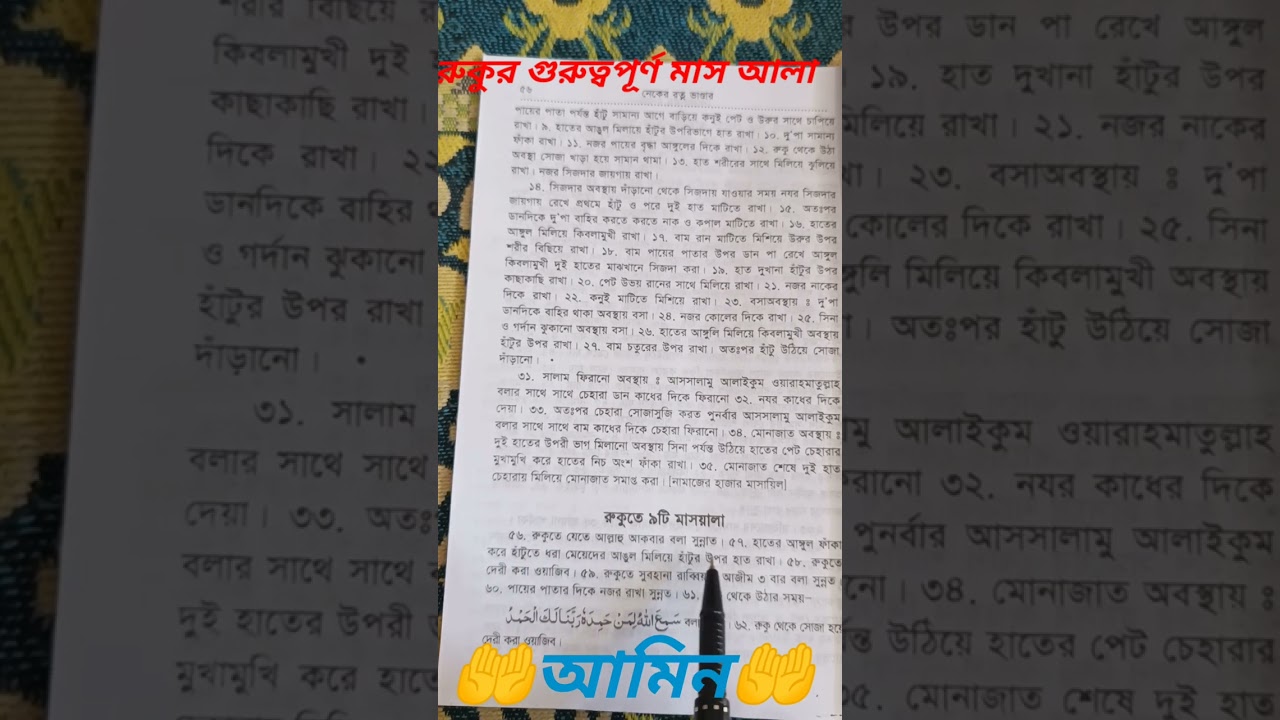 রুকুর গুরুত্বপূর্ণ মাস আলা
৫৬
নেকের রত্ন ভাণ্ডার
পায়ের পাতা পর্যন্ত হাঁটু সামান্য আগে বাড়িয়ে কনুই পেট ও উরুর সাথে চাপিয়ে
রাখা। ৯. হাতের আঙুল মিলায়ে হাঁটুর উপরিভাগে হাত রাখা। ১০. দু'পা সামান্য
ফাঁকা রাখা। ১১. নজর পায়ের বৃদ্ধা আঙ্গুলের দিকে রাখা। ১২. রুকু থেকে উঠা
অবস্থা সোজা খাড়া হয়ে সামান থামা। ১৩. হাত শরীরের সাথে মিলিয়ে ঝুলিয়ে
রাখা। নজর সিজদার জায়গায় রাখা।
১৪. সিজদার অবস্থায় দাঁড়ানো থেকে সিজদায় যাওয়ার সময় নযর সিজদার
জায়গায় রেখে প্রথমে হাঁটু ও পরে দুই হাত মাটিতে রাখা। ১৫. অতঃপর
ডানদিকে দু'পা বাহির করতে করতে নাক ও কপাল মাটিতে রাখা। ১৬. হাতের
আঙ্গুল মিলিয়ে কিবলামুখী রাখা। ১৭. বাম রান মাটিতে মিশিয়ে উরুর উপর
শরীর বিছিয়ে রাখা। ১৮. বাম পায়ের পাতার উপর ডান পা রেখে আঙ্গুল
কিবলামুখী দুই হাতের মাঝখানে সিজদা করা। ১৯. হাত দুখানা হাঁটুর উপর
কাছাকাছি রাখা। ২০. পেট উভয় রানের সাথে মিলিয়ে রাখা। ২১. নজর নাকের
দিকে রাখা। ২২. কনুই মাটিতে মিশিয়ে রাখা। ২৩. বসাঅবস্থায় ঃ দু'পা
ডানদিকে বাহির থাকা অবস্থায় বসা। ২৪. নজর কোলের দিকে রাখা। ২৫. সিনা
ও গর্দান ঝুকানো অবস্থায় বসা। ২৬. হাতের আঙ্গুলি মিলিয়ে কিবলামুখী অবস্থায়
হাঁটুর উপর রাখা। ২৭. বাম চতুরের উপর রাখা। অতঃপর হাঁটু উঠিয়ে সোজা
দাঁড়ানো।
৩১. সালাম ফিরানো অবস্থায় ঃ আসসালামু আলাইকুম ওয়ারাহমাতুল্লাহ
বলার সাথে সাথে চেহারা ডান কাধের দিকে ফিরানো ৩২. নযর কাধের দিকে
দেয়া। ৩৩. অতঃপর চেহারা সোজাসুজি করত পুনর্বার আসসালামু আলাইকুম
বলার সাথে সাথে বাম কাধের দিকে চেহারা ফিরানো। ৩৪. মোনাজাত অবস্থায় ঃ
দুই হাতের উপরী ভাগ মিলানো অবস্থায় সিনা পর্যন্ত উঠিয়ে হাতের পেট চেহারার
মুখামুখি করে হাতের নিচ অংশ ফাঁকা রাখা। ৩৫. মোনাজাত শেষে দুই হাত
চেহারায় মিলিয়ে মোনাজাত সমাপ্ত করা। [নামাজের হাজার মাসায়িল]
রুকুতে ৯টি মাসয়ালা
৫৬. রুকুতে যেতে আল্লাহু আকবার বলা সুন্নাত। ৫৭. হাতের আঙ্গুল ফাঁকা
করে হাঁটুতে ধরা মেয়েদের আঙুল মিলিয়ে হাঁটুর উপর হাত রাখা। ৫৮. রুকুতে
দেরী করা ওয়াজিব। ৫৯. রুকুতে সুবহানা রাব্বিয়াল আজীম ৩ বার বলা সুন্নত।
৬০. পায়ের পাতার দিকে নজর রাখা সুন্নত। ৬১. থেকে উঠার সময়–
سَمِعَ اللهُ لِمَنْ حَمِدَهٗ رَبَّنَا لَكَ الْحَمْدُ বলা ৬২. রুকু থেকে সোজা হয়ে
দেরী করা ওয়াজিব।
🤲আমিন🤲